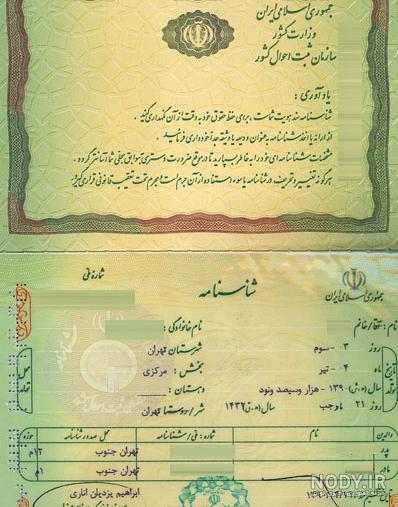 جمهوری اسلامی ایران
وزارت کشور
سازمان ثبت احوال کشور
یادآوری :
شناسنامه سند هویت شماست ، برای حفظ حقوق خود به دقت از آن نگهداری کنید .
از ارایه یا اخذ شناسنامه به عنوان ودیعه یا وثیقه جداً خودداری فرمائید .
مشخصات شناسنامه ای خود را به خاطر بسپارید تا در موقع ضرورت دسترسی به سوابق سجلی شما آسانتر گردد .
هرگونه تغییر و تحریف در شناسنامه یا سوء استفاده از آن جرم است و مجرم تحت تعقیب قانونی قرار می گیرد .
شماره ملی
جمهوری اسلامی ایران
شناسنامه
آقا / خانم :
نام خانوادگی :
روز ۳ - سوم
شهرستان تهران
ماه ۴ - تیر
بخش : مرکزی
سال (ه.ش) ۱۳۹۰ - هزار و سیصد و نود
دهستان :
روز ۲۱ ماه رجب سال (ه.ق) ۱۴۳۲
شهر / روستا تهران
تاریخ تولد
محل تولد
والدین نام شماره : ملی / شناسنامه محل صدور شناسنامه حوزه
پدر تهران جنوب ۱۲م
مادر تهران جنوب ۱م
تاریخ تنظیم
ابراهیم یزدیان اناری
NODY.IR